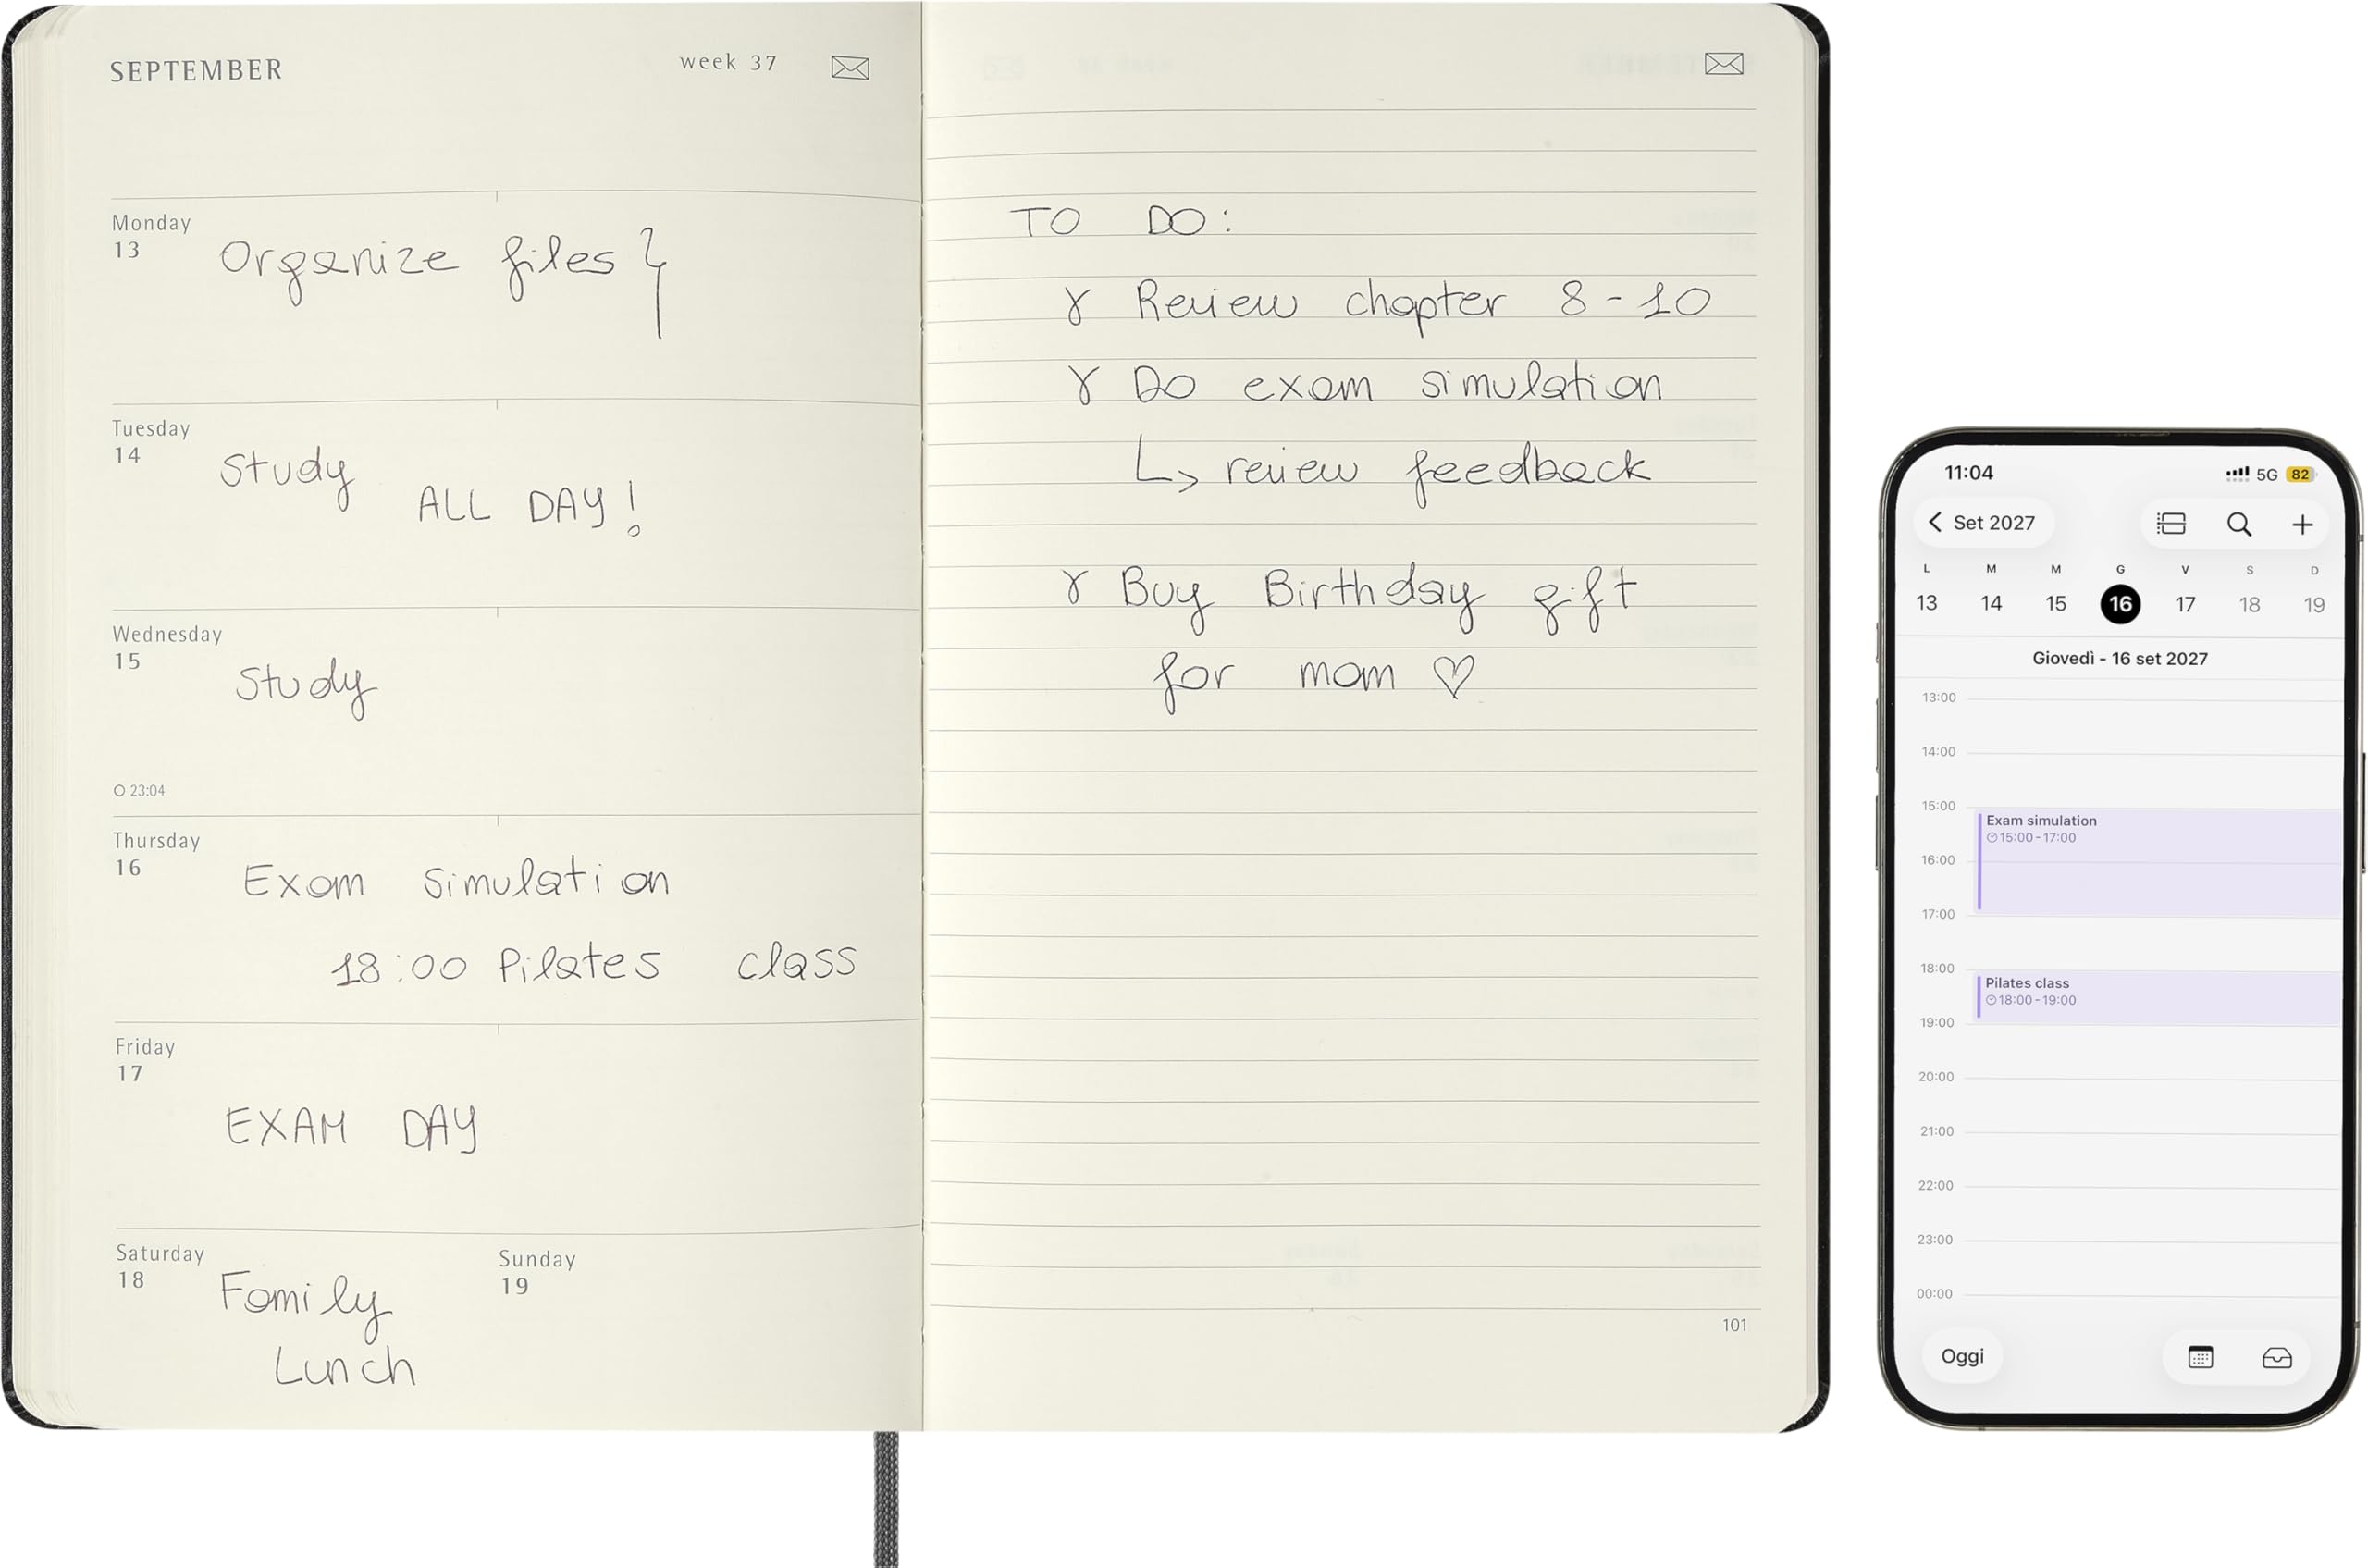 SEPTEMBER
week 37
Monday
13
Organize files
Tuesday
14
Study
ALL DAY!
Wednesday
15
Study
23:04
Thursday
16
Exam simulation
18:00 Pilates class
Friday
17
EXAM DAY
Saturday
18
Family
Lunch
Sunday
19
TO DO:
Review chapter 8-10
Do exam simulation
↳ review feedback
Buy Birthday gift
for mom ♡
101
11:04
5G 82
Set 2027
L M M G V S D
13 14 15 16 17 18 19
Giovedì - 16 set 2027
13:00
14:00
15:00
Exam simulation
15:00-17:00
16:00
17:00
18:00
Pilates class
18:00-19:00
19:00
20:00
21:00
22:00
23:00
00:00
Oggi